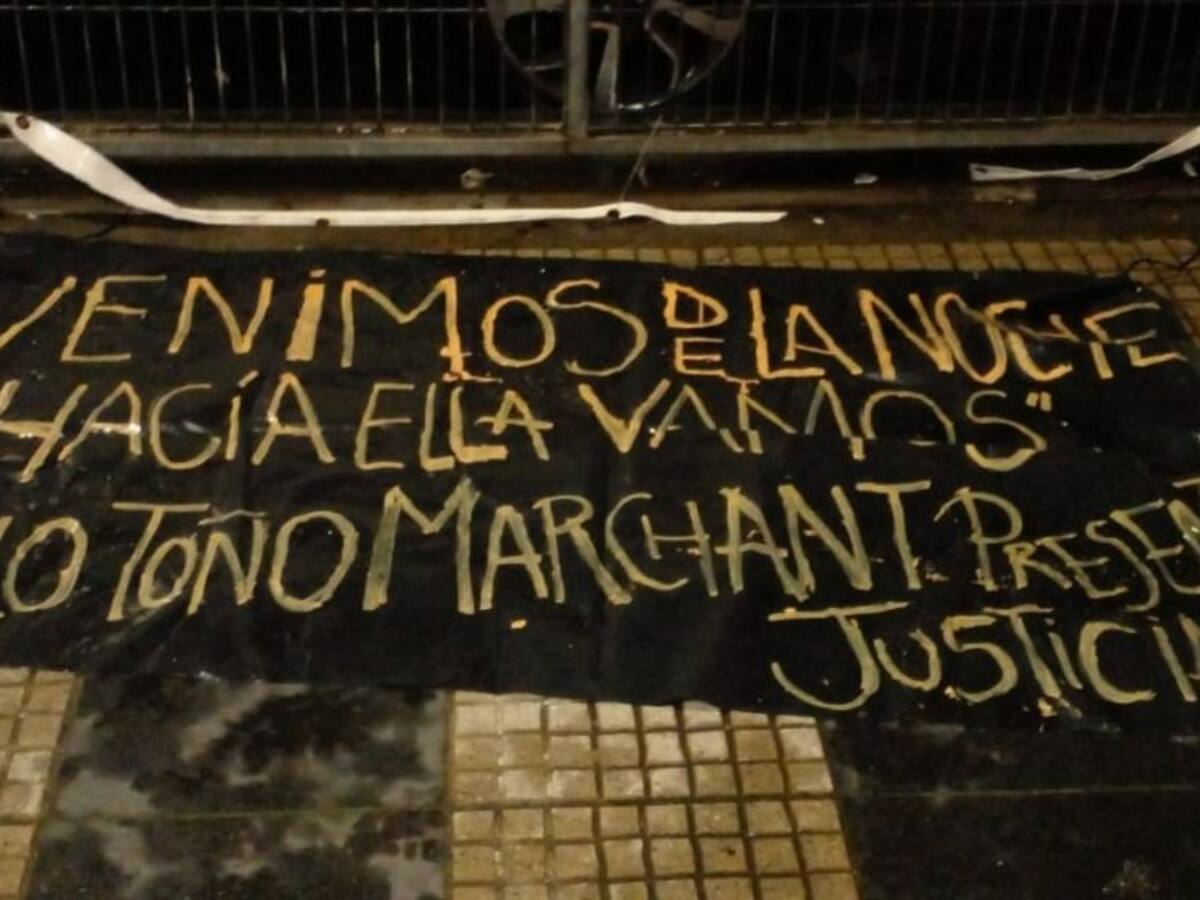 VENIMOS DE LA NOCHE
HACÍA ELLA VAMOS"
TOÑO MARCHANT PRESENT
JUSTICI